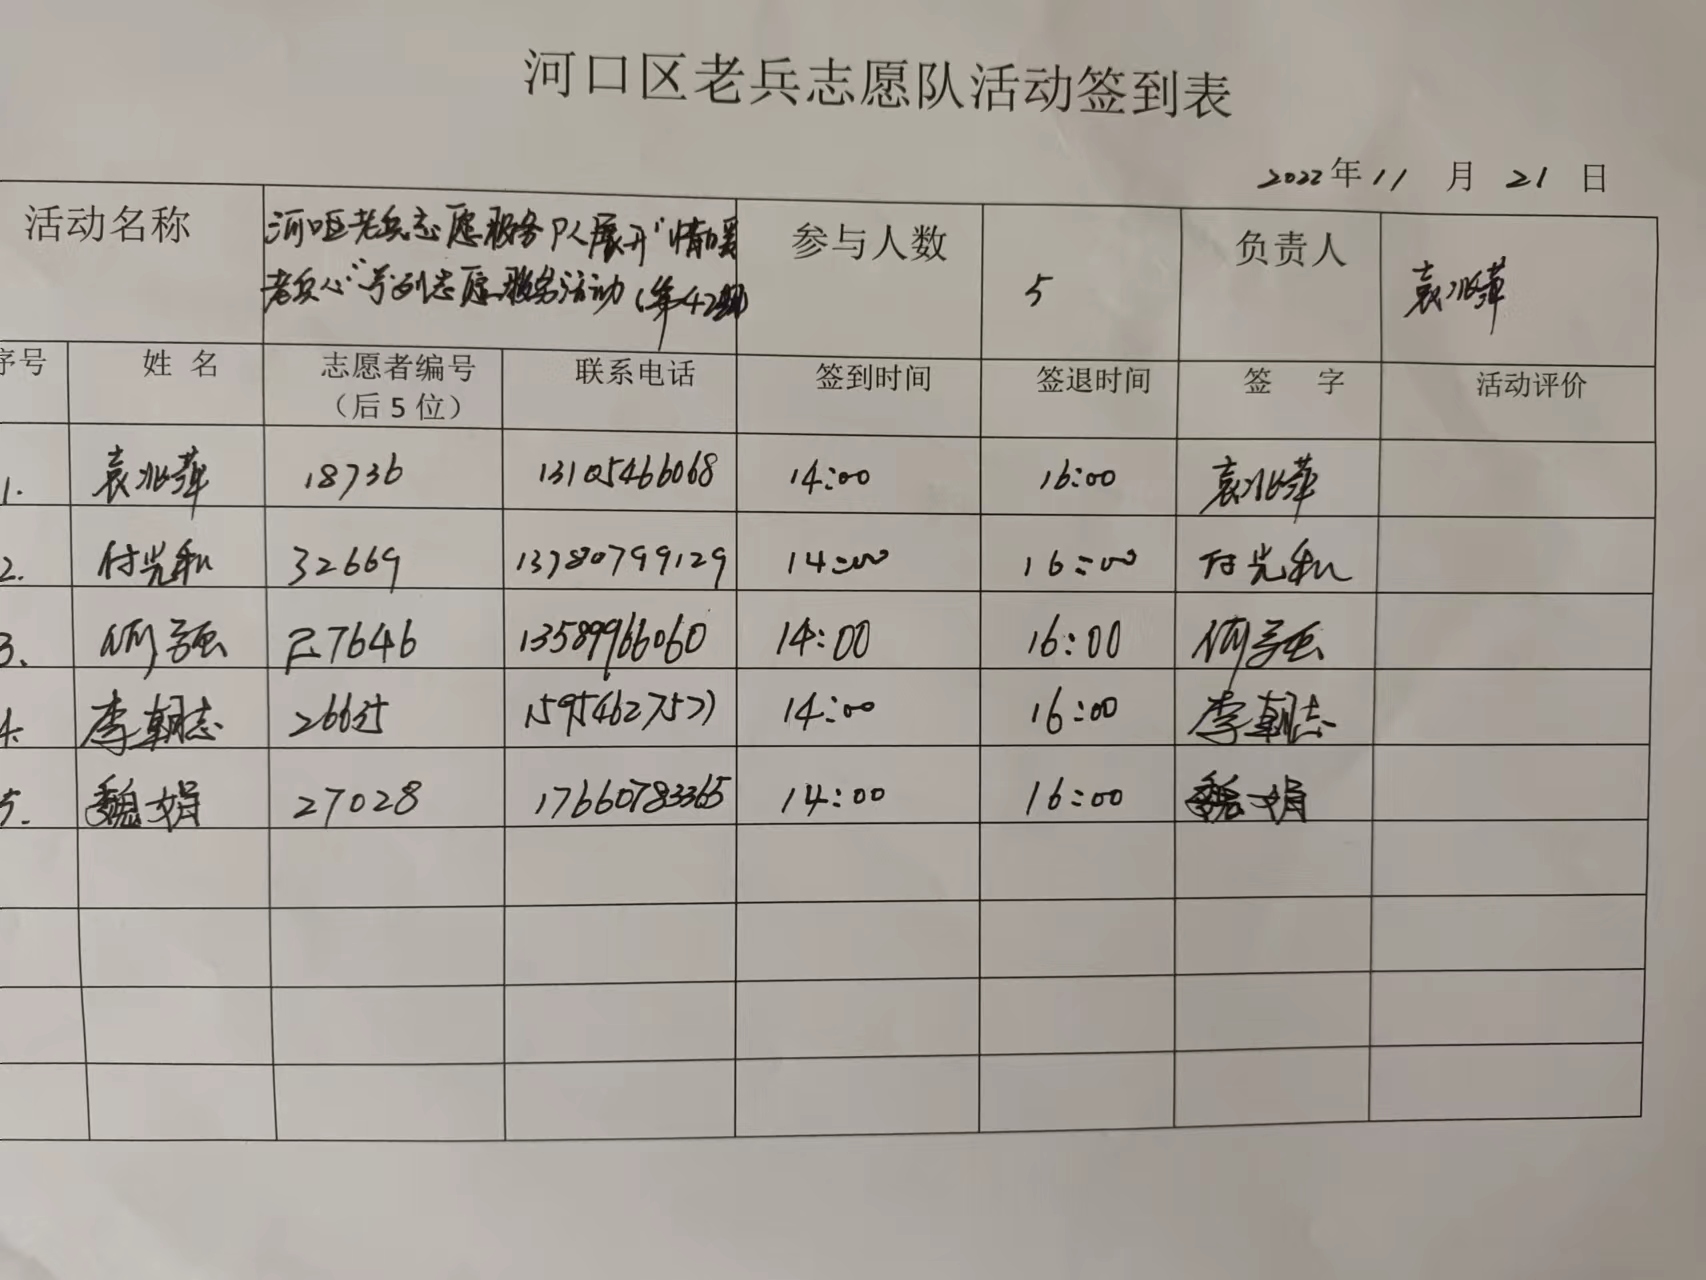 河口区老兵志愿队活动签到表
2022年11月21日
活动名称 河口区老兵志愿服务队展开"情暖 参与人数 5 负责人 袁兆萍
老兵心"系列志愿服务活动(第42期
序号 姓名 志愿者编号 联系电话 签到时间 签退时间 签字 活动评价
(后5位)
1. 袁兆萍 18736 13105466068 14:00 16:00 袁兆萍
2. 付光和 32669 13780799129 14:00 16:00 付光和
3. 27646 13589966060 14:00 16:00
4. 李朝志 14:00 16:00 李朝志
5. 魏娟 27028 17660783365 14:00 16:00 魏娟